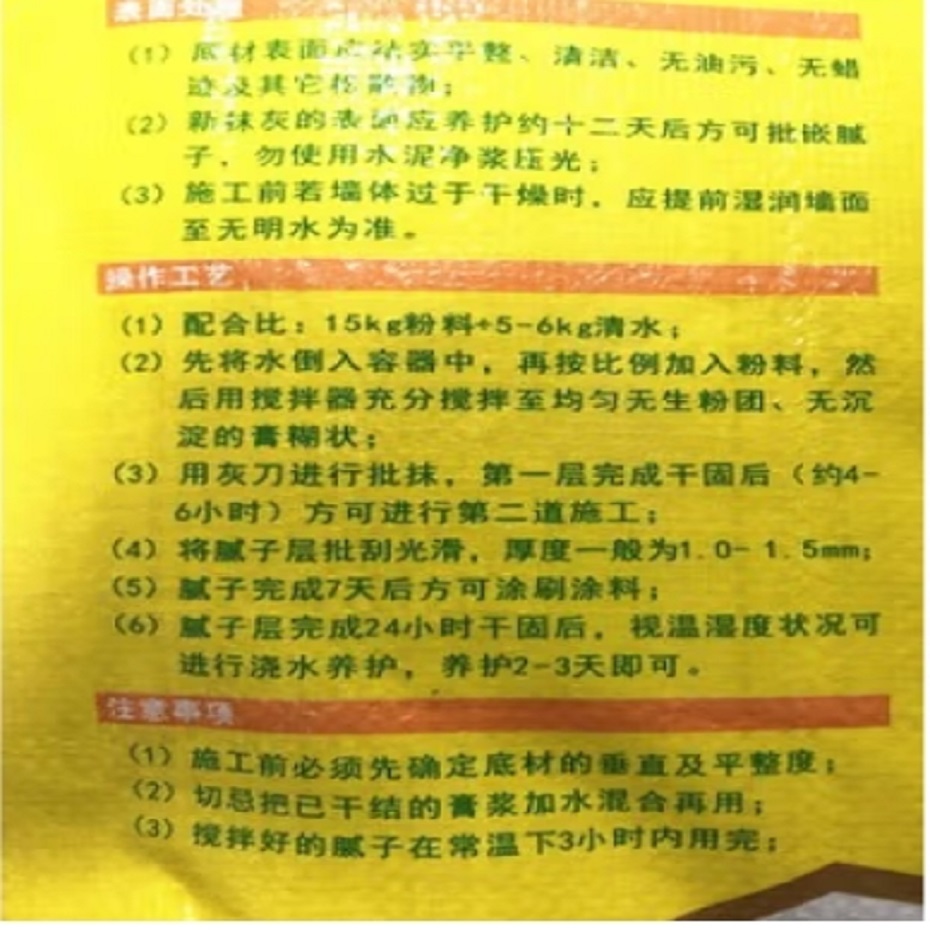 表面处理
(1) 底材表面应结实平整、清洁、无油污、无蜡
迹及其它松散物；
(2) 新抹灰的表面应养护约十二天后方可批嵌腻
子，勿使用水泥净浆压光；
(3) 施工前若墙体过于干燥时，应提前湿润墙面
至无明水为准。
操作工艺
(1) 配合比：15kg粉料+5-6kg清水；
(2) 先将水倒入容器中，再按比例加入粉料，然
后用搅拌器充分搅拌至均匀无生粉团、无沉
淀的膏糊状；
(3) 用灰刀进行批抹，第一层完成干固后（约4-
6小时）方可进行第二道施工；
(4) 将腻子层批刮光滑，厚度一般为1.0-1.5mm；
(5) 腻子完成7天后方可涂刷涂料；
(6) 腻子层完成24小时干固后，视温湿度状况可
进行浇水养护，养护2-3天即可。
注意事项
(1) 施工前必须先确定底材的垂直及平整度；
(2) 切忌把已干结的膏浆加水混合再用；
(3) 搅拌好的腻子在常温下3小时内用完；